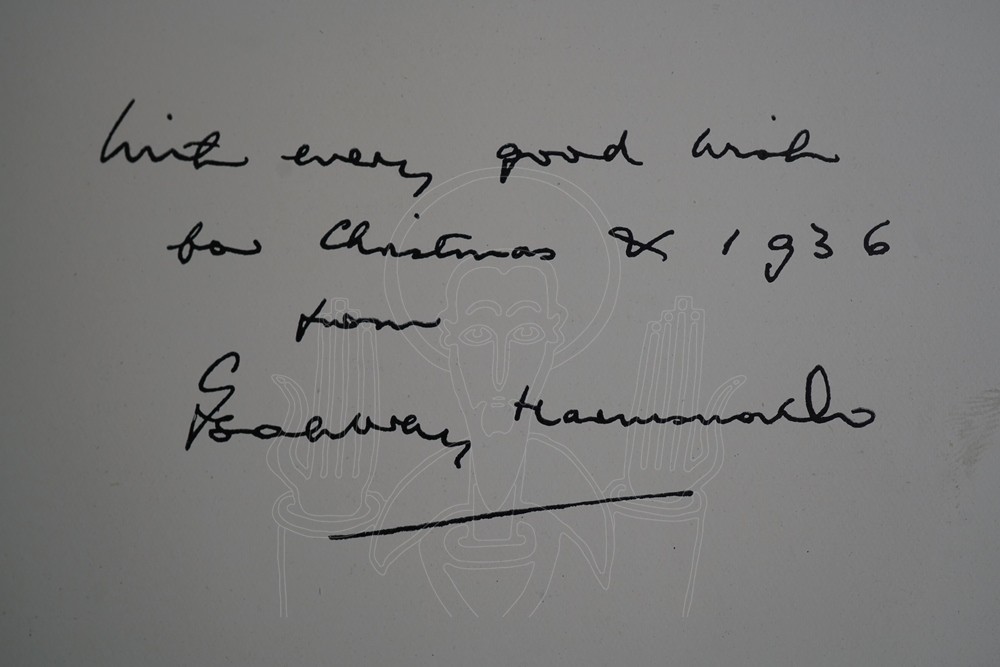 With every good wish
for Christmas & 1936
from
Geoffrey Harmsworth